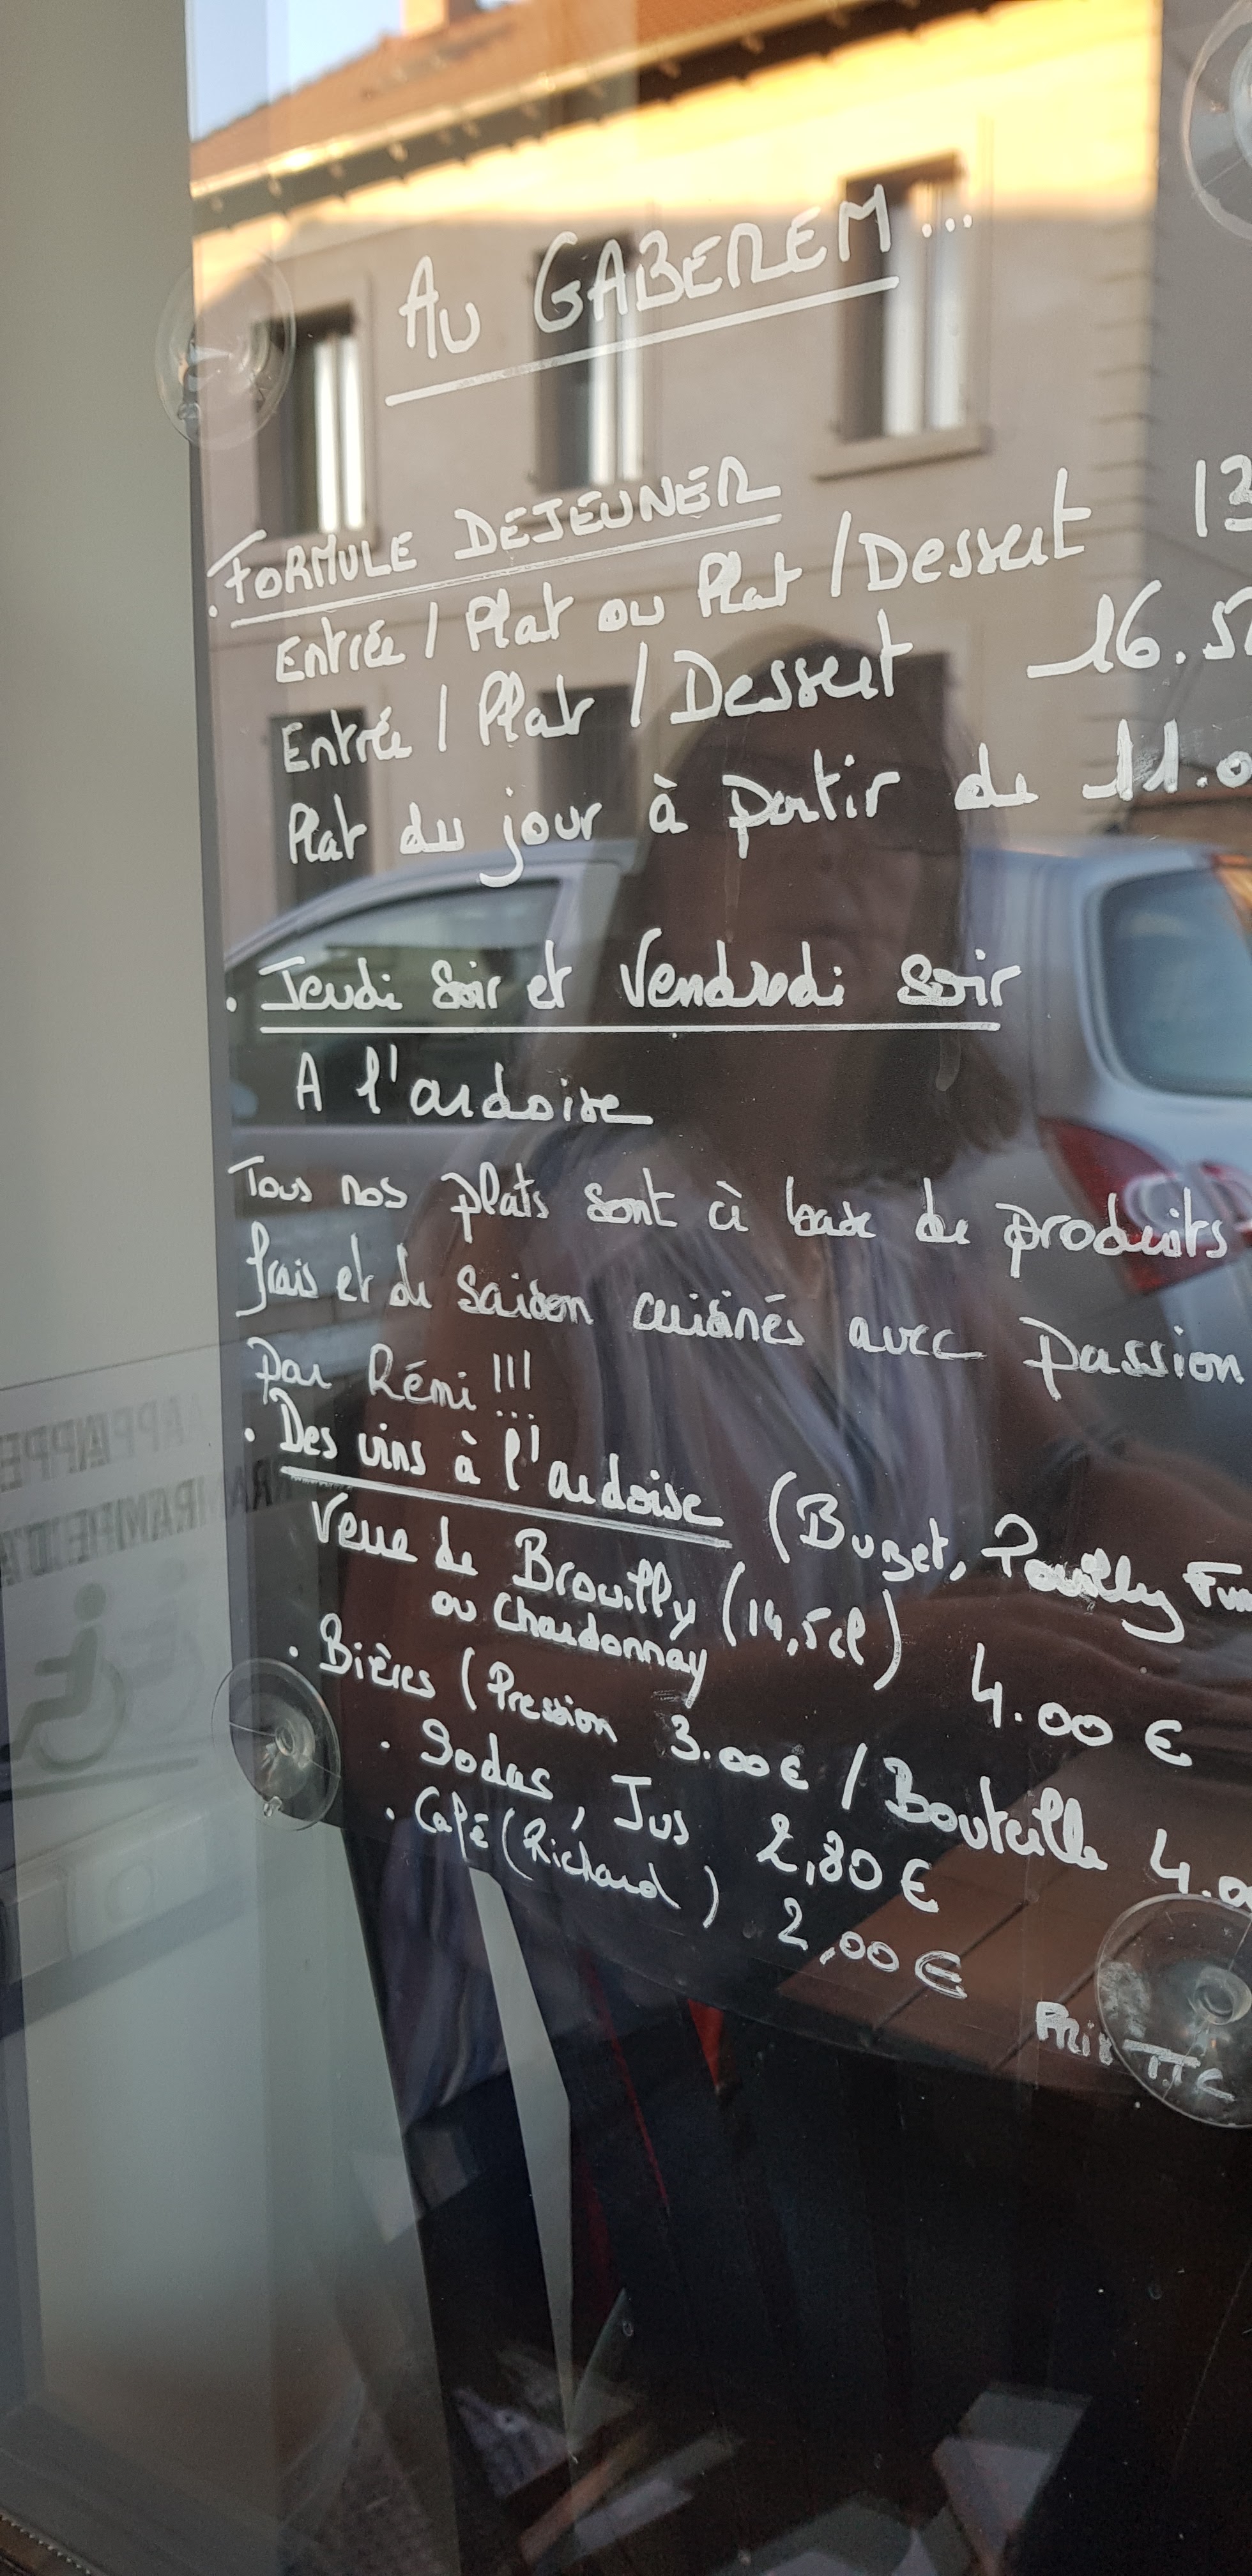 Au GABEREM...
. FORMULE DEJEUNER
Entrée / Plat ou Plat / Dessert 13
Entrée / Plat / Dessert 16.5
Plat du jour à partir de 11.0
. Jeudi Soir et Vendredi soir
A l'ardoise
Tous nos plats sont à base de produits
frais et de saison cuisinés avec passion
par Rémi !!!
. Des vins à l'ardoise (Buzet, Pouilly Fum
Verre de Brouilly (14,5cl) 4.00 €
ou Chardonnay
. Bières (Pression 3.00€ / Bouteille 4.0
. Sodas, Jus 2,80 €
. Café (Richard) 2,00 €
Prix TTC